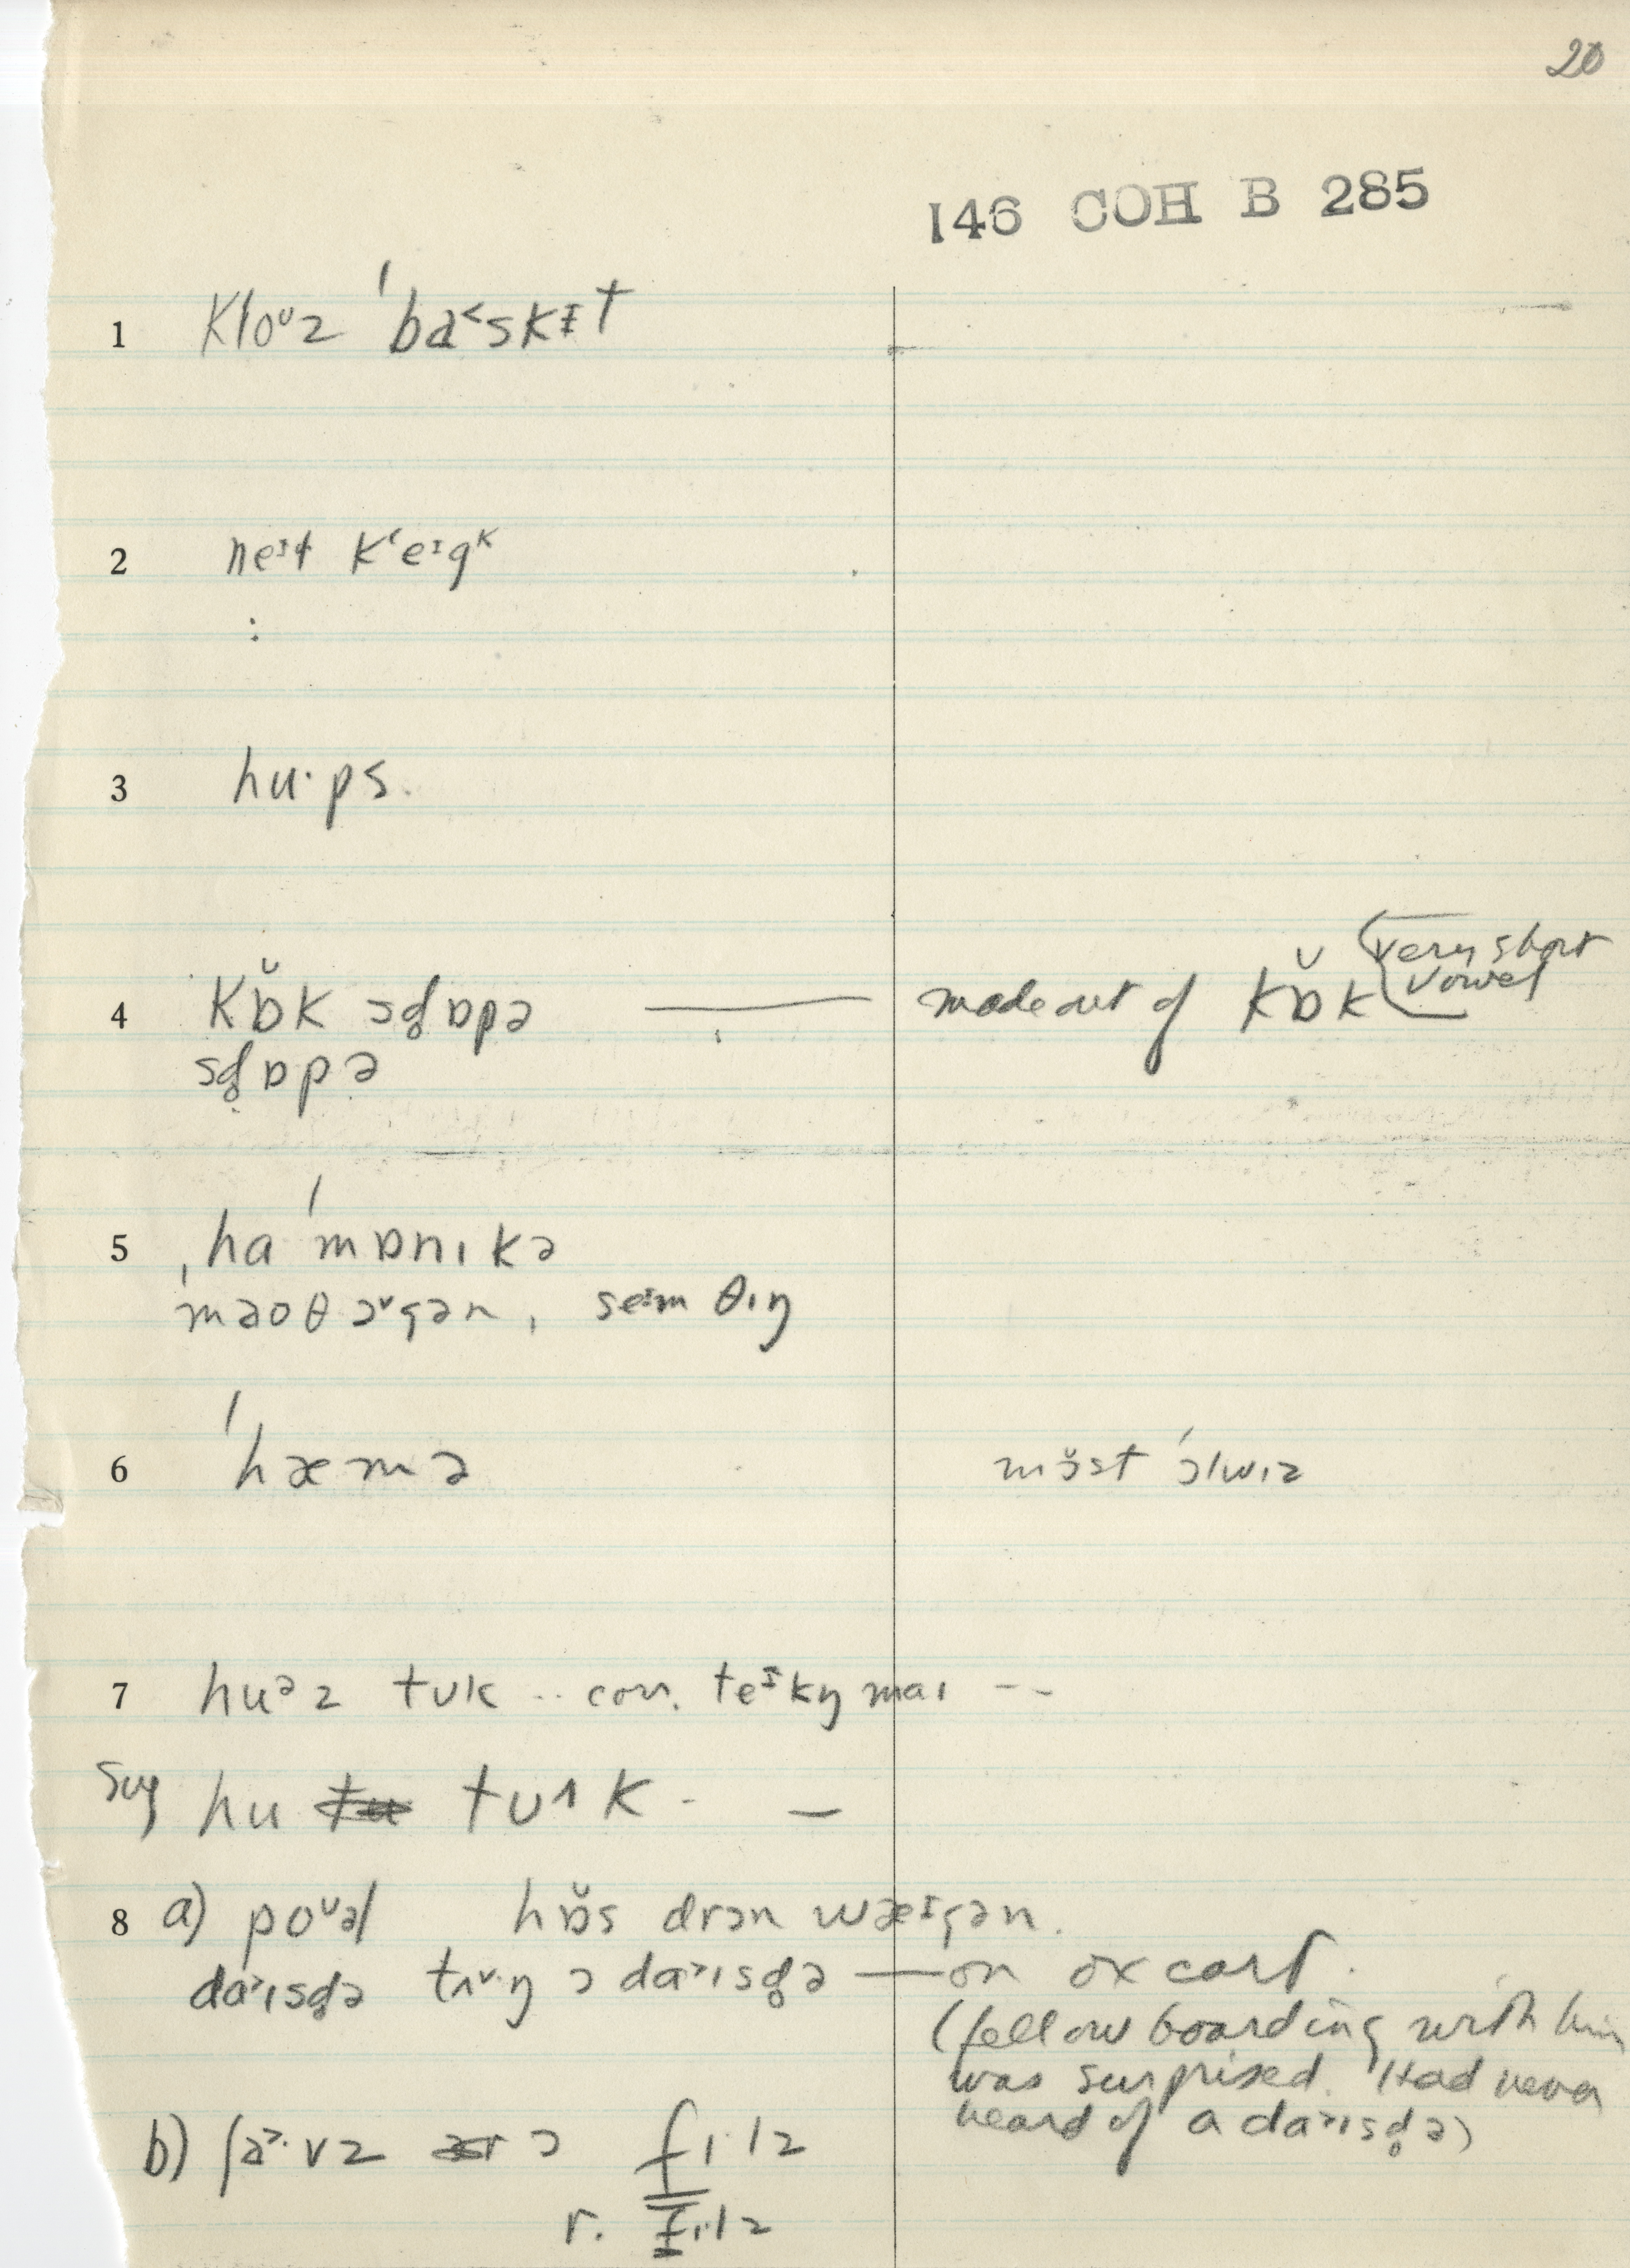 20
146 COH B 285
1 kloᶷz ˈba˂skɪt
2 neɪt kʻeɪgᵏ
:
3 hu·ps.
4 kɒ̆k sd̥ɒpə — made out of kɒ̆k (very short vowel
sd̥ɒpə
5 ˌhaˈmɒnɪkə
ˈmaoθ ɔ˅gən, seɪm θɪŋ
6 ˈhæmə mɔ̆st ˈɔlwɪz
7 huᵊz tʊk .. con. teᶦkŋ maɪ --
Sug hu tʊ˄k - —
8 a) poᶷəl hɒ̆s drɔn wæɪgən.
da˃ɪsd̥ə tʌ˅·ŋ ɔ da˃ɪsd̥ə — on ox cart.
(fellow boarding with him
was surprised. Had never
heard of a da˃ɪsd̥ə)
b) ʃa˃·vz ɔ fɪ·lz
r. fɪ·lz